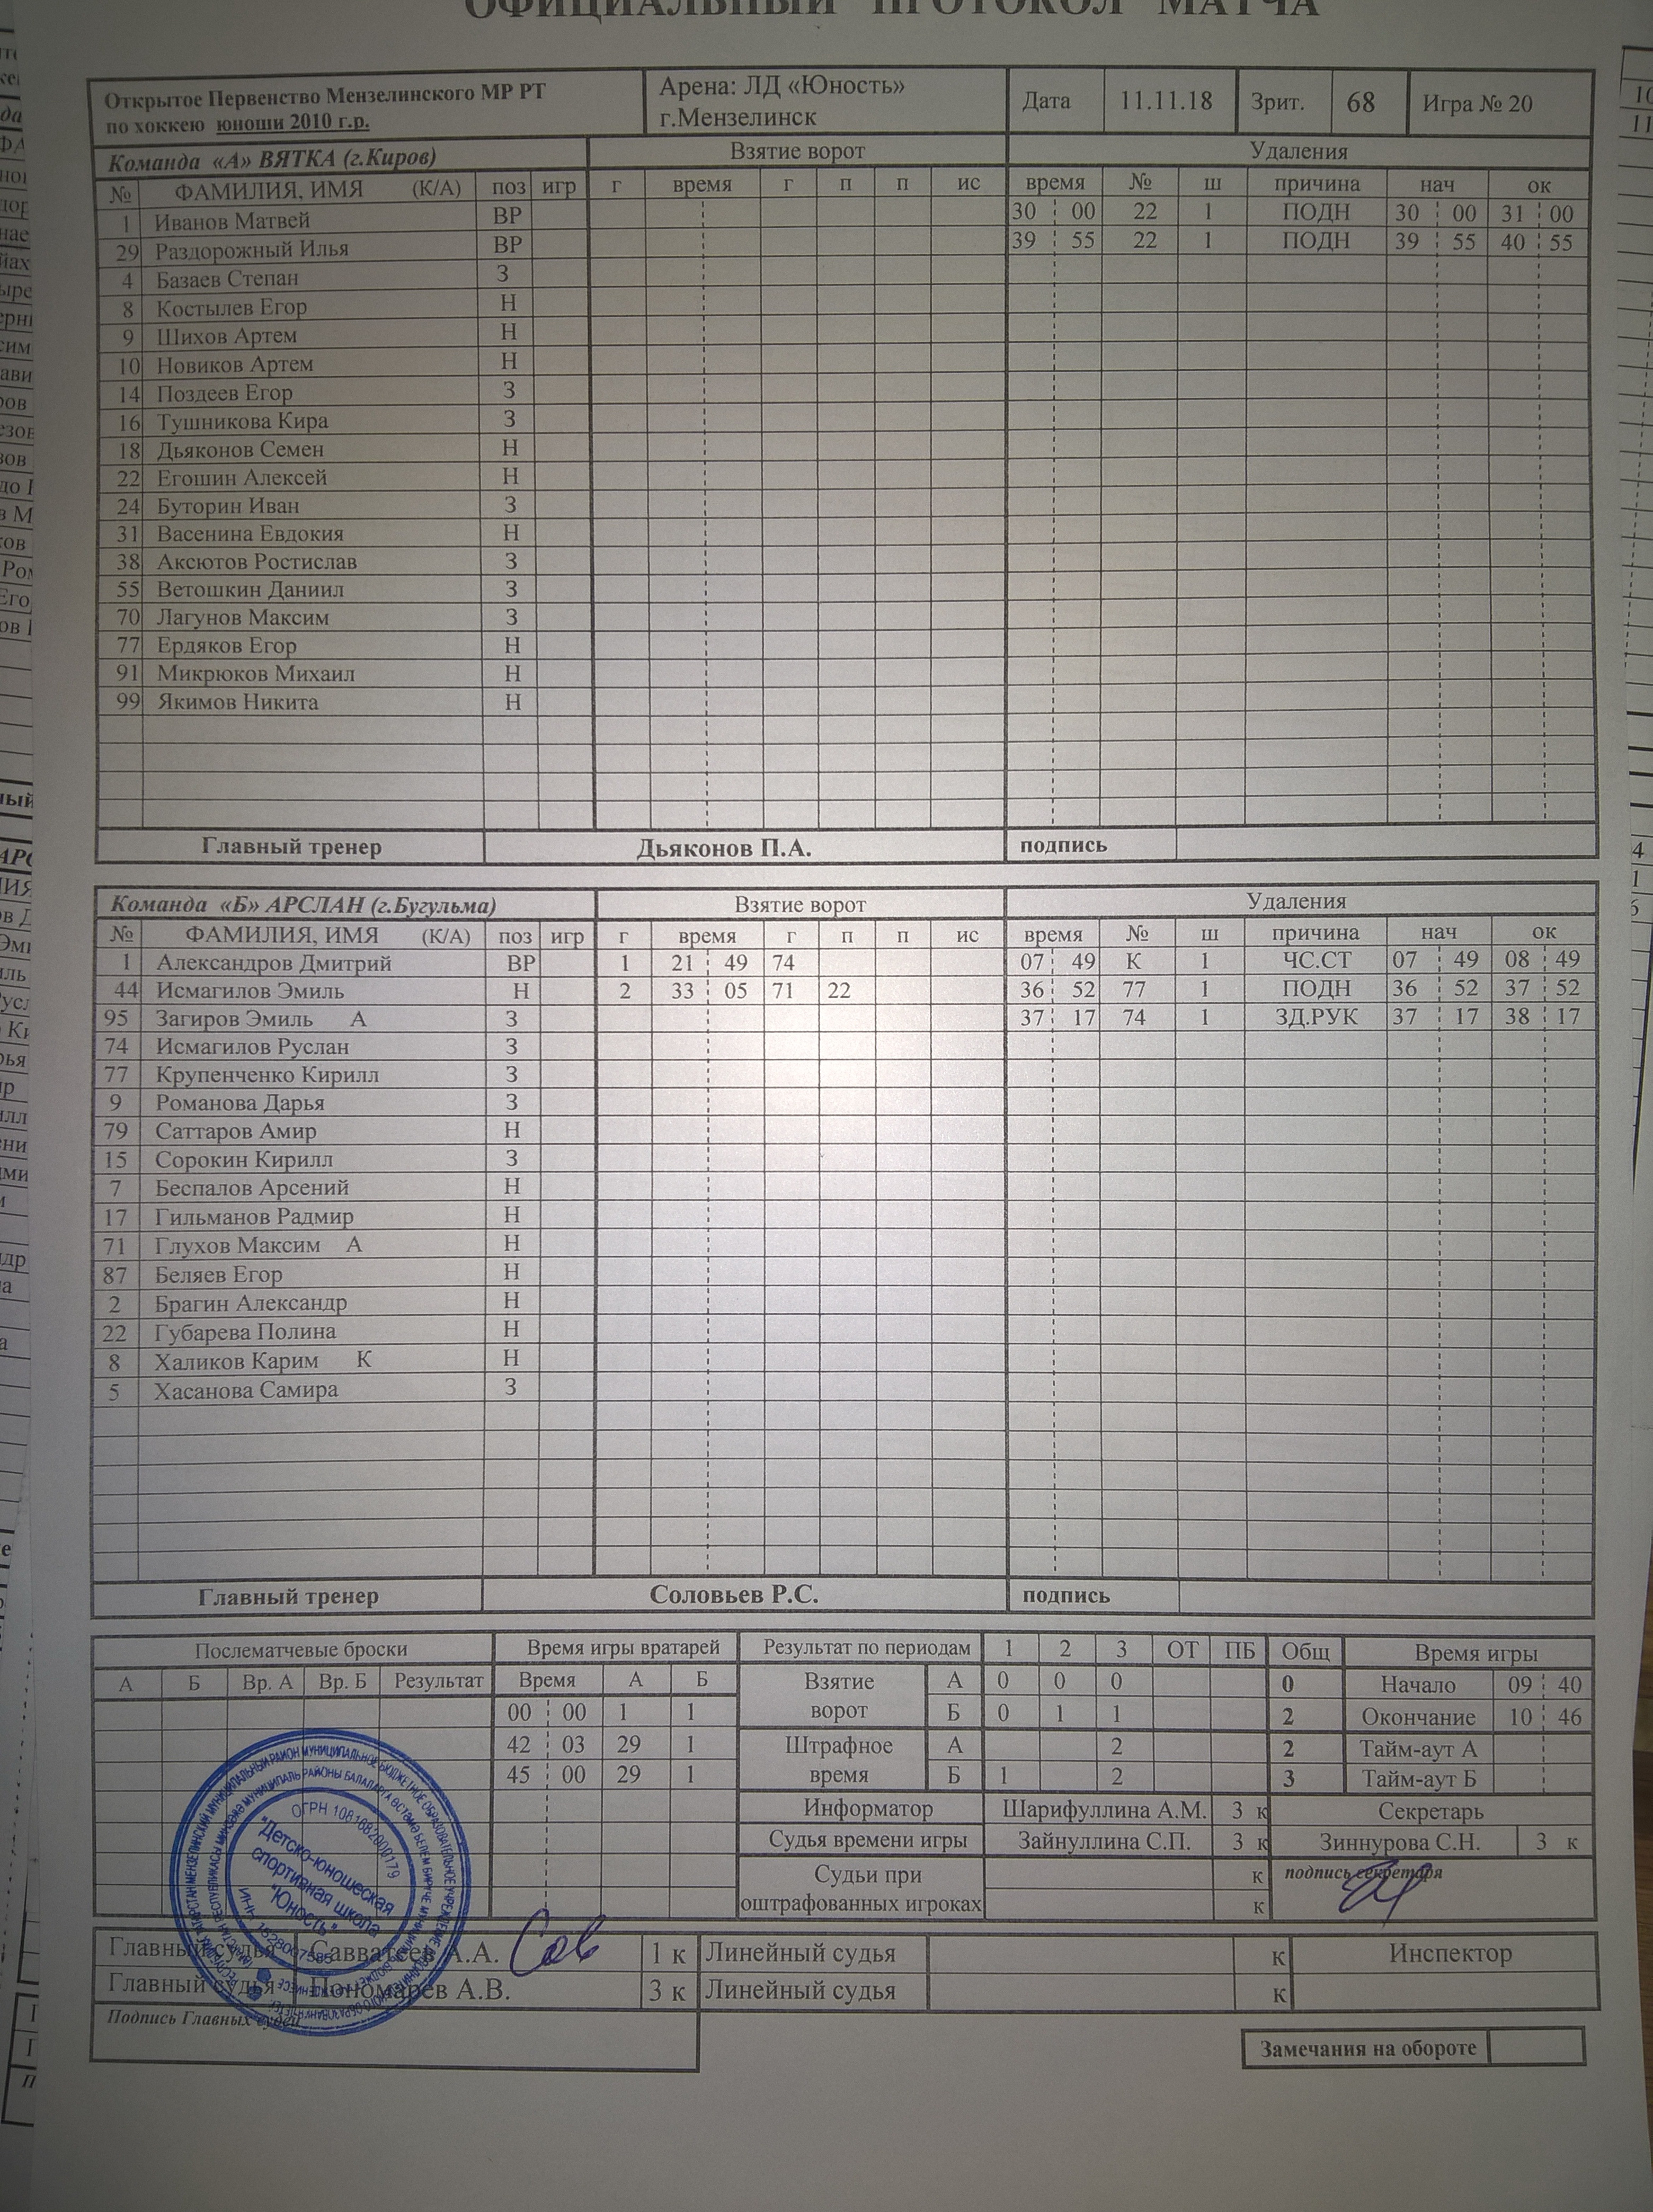 ОФИЦИАЛЬНЫЙ ПРОТОКОЛ МАТЧА
Открытое Первенство Мензелинского МР РТ
по хоккею юноши 2010 г.р.
Арена: ЛД «Юность»
г.Мензелинск
Дата 11.11.18 Зрит. 68 Игра № 20
Команда «А» ВЯТКА (г.Киров) Взятие ворот Удаления
№ ФАМИЛИЯ, ИМЯ (К/А) поз игр г время г п п ис время № ш причина нач ок
1 Иванов Матвей ВР 30 00 22 1 ПОДН 30 00 31 00
29 Раздорожный Илья ВР 39 55 22 1 ПОДН 39 55 40 55
4 Базаев Степан З
8 Костылев Егор Н
9 Шихов Артем Н
10 Новиков Артем Н
14 Поздеев Егор З
16 Тушникова Кира З
18 Дьяконов Семен Н
22 Егошин Алексей Н
24 Буторин Иван З
31 Васенина Евдокия Н
38 Аксютов Ростислав З
55 Ветошкин Даниил З
70 Лагунов Максим З
77 Ердяков Егор Н
91 Микрюков Михаил Н
99 Якимов Никита Н
Главный тренер Дьяконов П.А. подпись
Команда «Б» АРСЛАН (г.Бугульма) Взятие ворот Удаления
№ ФАМИЛИЯ, ИМЯ (К/А) поз игр г время г п п ис время № ш причина нач ок
1 Александров Дмитрий ВР 1 21 49 74 07 49 К 1 ЧС.СТ 07 49 08 49
44 Исмагилов Эмиль Н 2 33 05 71 22 36 52 77 1 ПОДН 36 52 37 52
95 Загиров Эмиль А З 37 17 74 1 ЗД.РУК 37 17 38 17
74 Исмагилов Руслан З
77 Крупенченко Кирилл З
9 Романова Дарья З
79 Саттаров Амир Н
15 Сорокин Кирилл З
7 Беспалов Арсений Н
17 Гильманов Радмир Н
71 Глухов Максим А Н
87 Беляев Егор Н
2 Брагин Александр Н
22 Губарева Полина Н
8 Халиков Карим К Н
5 Хасанова Самира З
Главный тренер Соловьев Р.С. подпись
Послематчевые броски Время игры вратарей Результат по периодам 1 2 3 ОТ ПБ Общ Время игры
А Б Вр. А Вр. Б Результат Время А Б Взятие ворот А 0 0 0 0 Начало 09 40
00 00 1 1 Б 0 1 1 2 Окончание 10 46
42 03 29 1 Штрафное время А 2 2 Тайм-аут А
45 00 29 1 Б 1 2 3 Тайм-аут Б
Информатор Шарифуллина А.М. 3 к Секретарь
Судья времени игры Зайнуллина С.П. 3 к Зиннурова С.Н. 3 к
Судьи при к подпись секретаря
оштрафованных игроках к
ОГРН
"Детско-юношеская
спортивная школа
"Юность"
Главный судья Савватеев А.А. 1 к Линейный судья к Инспектор
Главный судья Пономарев А.В. 3 к Линейный судья к
Подпись Главных судей
Замечания на обороте